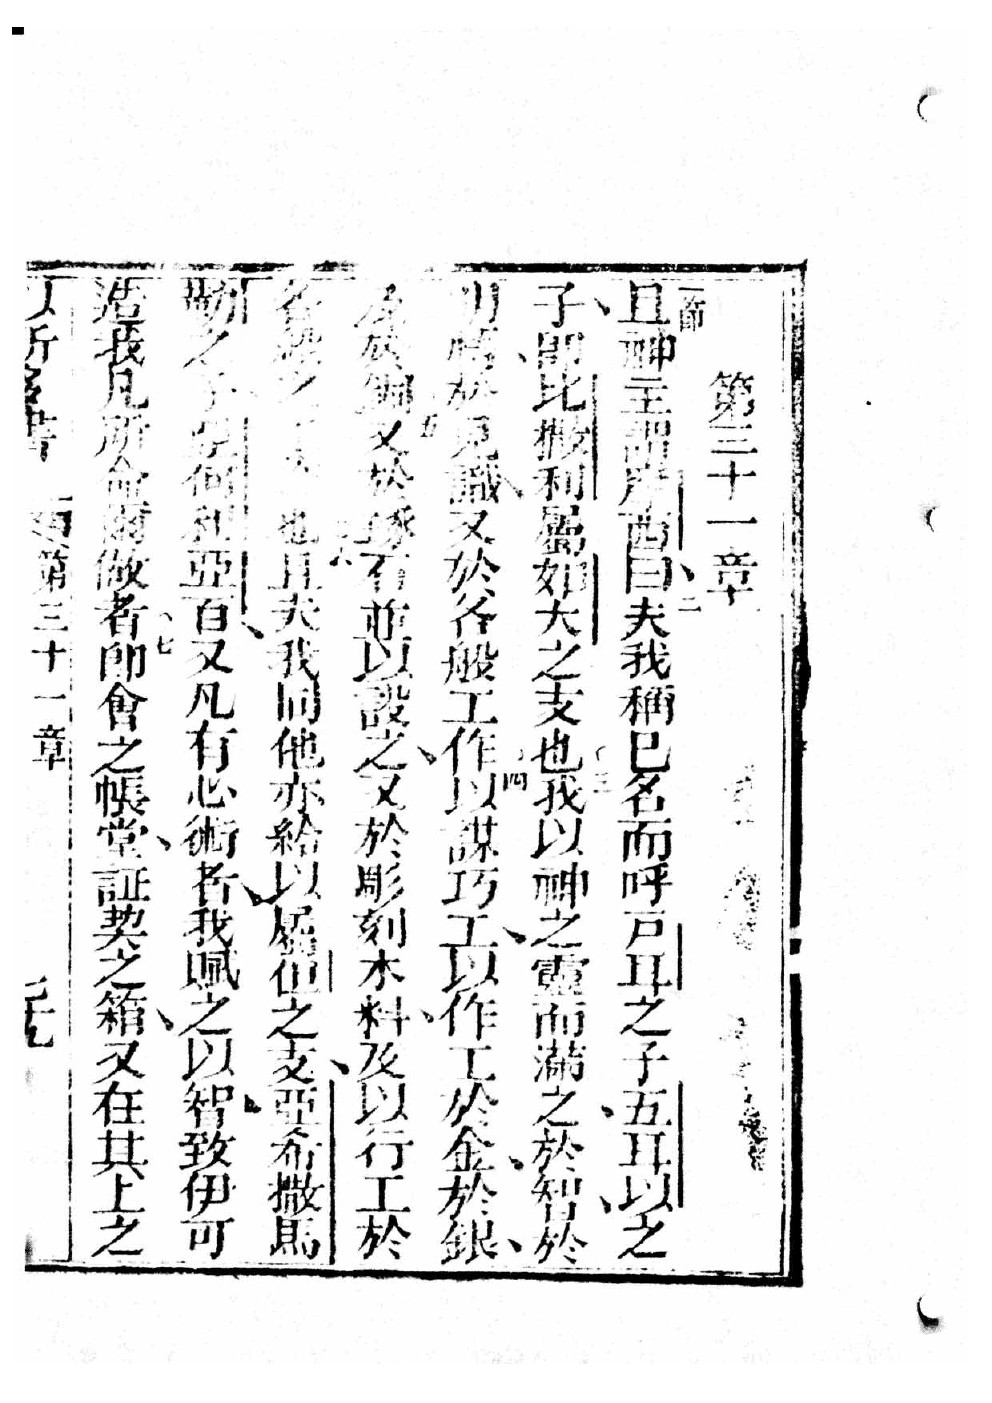 第三十一章
一節 且神主謂摩西曰夫我稱已名而呼戸耳之子五耳以之
子即比撒利屬如大之支也我以神之靈而滿之於智於
明悟於見識又於各般工作以謀巧工以作工於金於銀
及於銅又於琢石並以設之又於彫刻木料及以行工於
各般之工也且夫我同他亦給以屬但之支亞希撒馬
勒之子亞何利亞百又凡有心術者我賦之以智致伊可
造我凡所命爾做者即會之帳堂証契之箱又在其上之
第三十一章